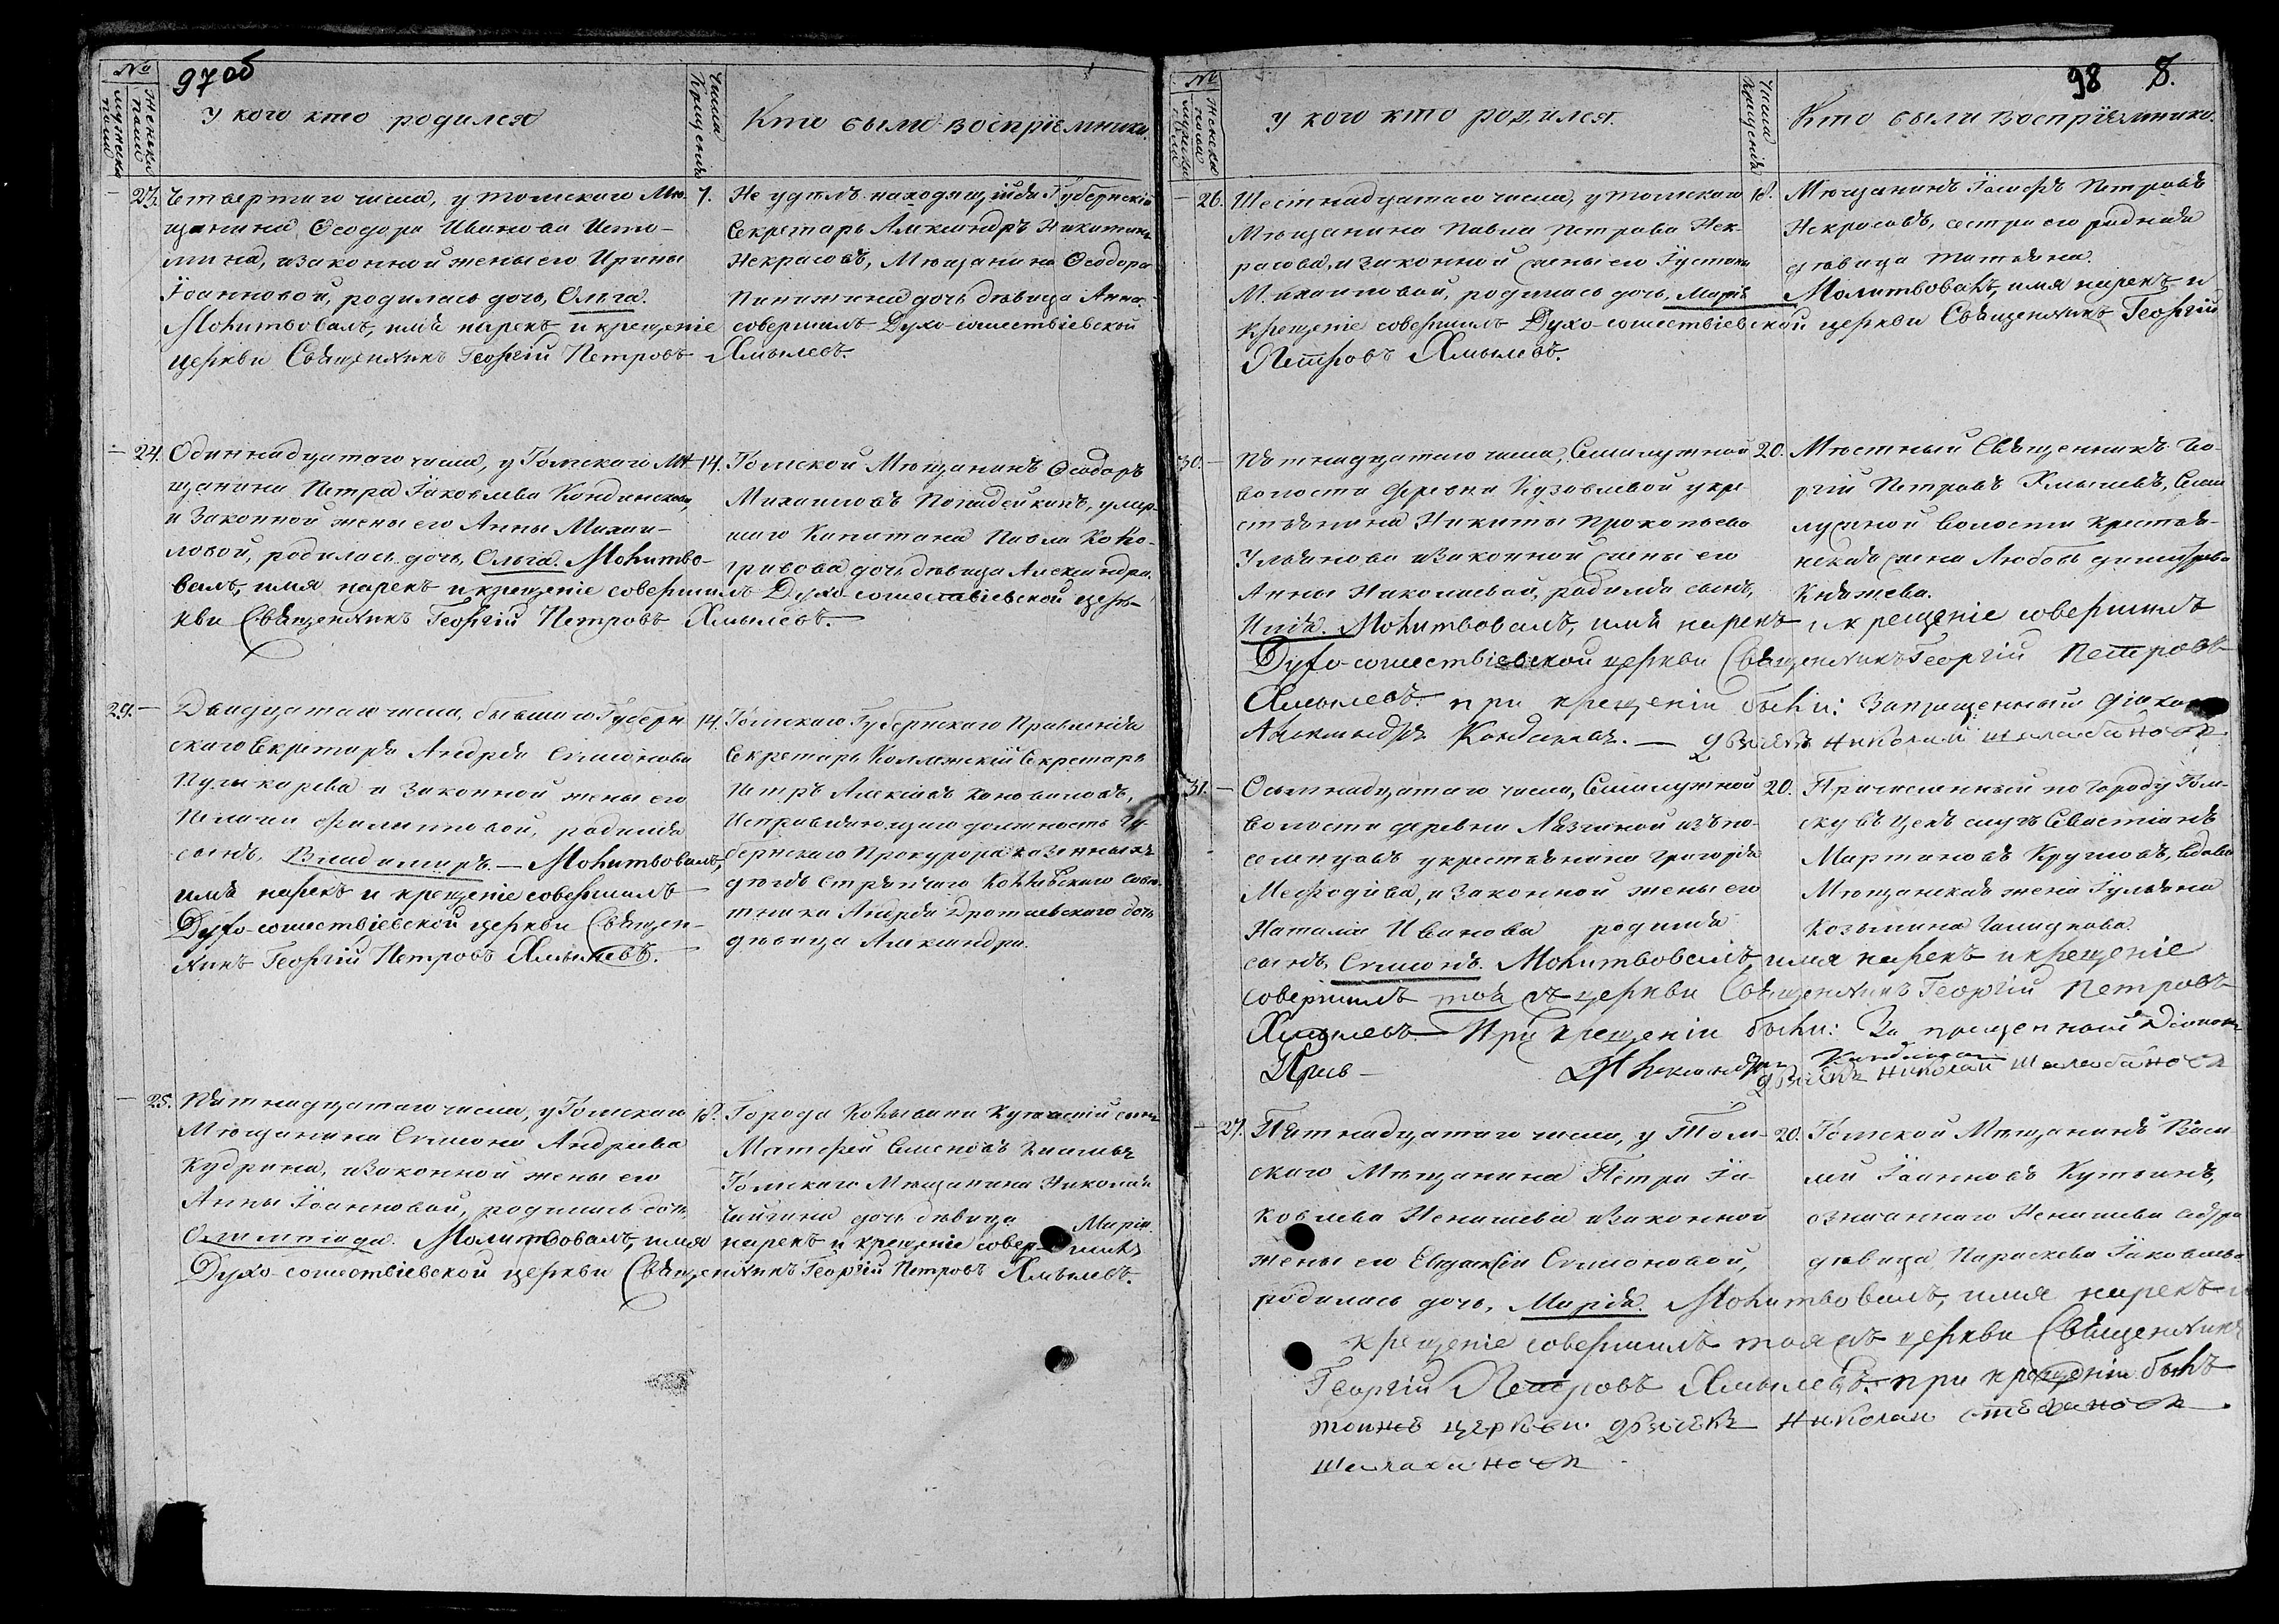 97 об
№
мужеска пола
женска пола
У кого кто родился
Числа крещенія
Кто были воспріемники.
23. Четвертаго числа, у томскаго Мѣ-
щанина Ѳеодора Иванова Исто-
мина, и законной жены его Ирины
Іоанновой, родилась дочь, Ольга.
Молитвовалъ, имя нарекъ и крещеніе совершилъ Духо-сошествіевской
церкви Священникъ Георгій Петровъ Хмылевъ.
7.
Не у дѣлъ находящійся Губернскій
Секретарь Александръ Никитинъ
Некрасовъ, Мѣщанина Ѳеодора
дочь дѣвица Анна.
24. Одиннадцатаго числа, у Томскаго Мѣ-
щанина Петра Іаковлева Кондинскаго,
и законной жены его Анны Михаи-
ловой, родилась дочь, Ольга. Молитво-
валъ, имя нарекъ и крещеніе совершилъ Духо-сошествіевской цер-
кви Священникъ Георгій Петровъ Хмылевъ.
14.
Томской Мѣщанинъ Ѳеодоръ
Михаиловъ Попадейкинъ, умер-
шаго Капитана Павла Коно-
гривова дочь дѣвица Александра.
29. Двадцатаго числа, бывшаго Губерн-
скаго Секретаря Андрея Симонова
Пушкарева и законной жены его
Пелагіи Филипповой, родился
сынъ, Владимиръ — Молитвовалъ,
имя нарекъ и крещеніе совершилъ
Духо-сошествіевской церкви Священ-
никъ Георгій Петровъ Хмылевъ.
14.
Томскаго Губернскаго Правленія
Секретарь Коллежскій Секретарь
Петръ Алексѣевъ Коноваловъ,
Исправляющаго должность Гу-
бернскаго Прокурора казенныхъ
дѣлъ Стряпчаго Коллежскаго Совѣ-
тника Андрея дочь
дѣвица Александра.
25. Пятнадцатаго числа, у Томскаго
Мѣщанина Симона Андреева
Кудрина, и законной жены его
Анны Іоанновой, родилась дочь,
Олимпіада. Молитвовалъ, имя нарекъ и крещеніе совершилъ
Духо-сошествіевской церкви Священникъ Георгій Петровъ Хмылевъ.
18.
Города Колывани Купеческій сынъ
Матѳей Семеновъ
Томскаго Мѣщанина Николая
дочь дѣвица Марія
98 8.
№
мужеска пола
женска пола
У кого кто родился.
Числа крещенія
Кто были воспріемники.
26. Шестнадцатаго числа, у томскаго
Мѣщанина Павла Петрова Нек-
расова, и законной жены его Іустины
Михаиловой, родилась дочь, Марія
Молитвовалъ, имя нарекъ и
крещеніе совершилъ Духо-сошествіевской церкви Священникъ Георгій
Петровъ Хмылевъ.
18.
Мѣщанинъ Іосифъ Петровъ
Некрасовъ, сестра его родная
дѣвица Татьяна.
30. Пятнадцатаго числа, Семилужной
волости деревни Кузовлевой у кре-
стьянина Никиты Прокопьева
Ульянова и законной жены его
Анны Николаевой, родился сынъ,
Илія. Молитвовалъ, имя нарекъ и крещеніе совершилъ
Духо-сошествіевской церкви Священникъ Георгій Петровъ
Хмылевъ. при крещеніи были: Запрещенный діаконъ
Александръ — Дьячекъ Николай Шалабановъ
20.
Мѣстный Священникъ Геор-
гій Петровъ Хмылевъ, Семи-
лужной волости крестьян-
ская жена Любовь Димитріева
Княжева.
31. Осьмнадцатаго числа, Семилужной
волости деревни Лязгиной изъ по-
селенцовъ у крестьянина Григорья
Меѳодіева, и законной жены его
Наталіи Ивановой родился
сынъ, Симонъ. Молитвовалъ, имя нарекъ и крещеніе
совершилъ тоя жъ церкви Священникъ Георгій Петровъ
Хмылевъ При крещеніи были: Запрещенный Діаконъ
Александръ
Дьячекъ Николай Шалабановъ
20.
Причисленный по городу Том-
ску въ цехъ слугъ Севастіанъ
Мартиновъ Кругловъ, вдова
Мѣщанская жена Іуліана
Козьмина
27. Пятнадцатаго числа, у Том-
скаго Мѣщанина Петра Іа-
ковлева Ненашева и законной
жены его Евдоксіи Симоновой,
родилась дочь, Марія. Молитвовалъ, имя нарекъ и
крещеніе совершилъ тоя жъ церкви Священникъ
Георгій Петровъ Хмылевъ. при крещеніи былъ
тойже церкви дьячекъ Николай Стефановъ
Шалабановъ
20.
Томской Мѣщанинъ Васи-
лій Іоанновъ Кутьинъ,
означеннаго Ненашева сестра
дѣвица Параскева Іаковлева